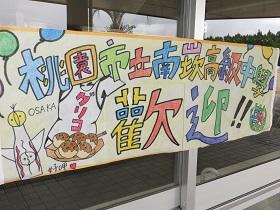 桃園市立南崁高級中學
歡迎!!
OSAKA
ダーコ